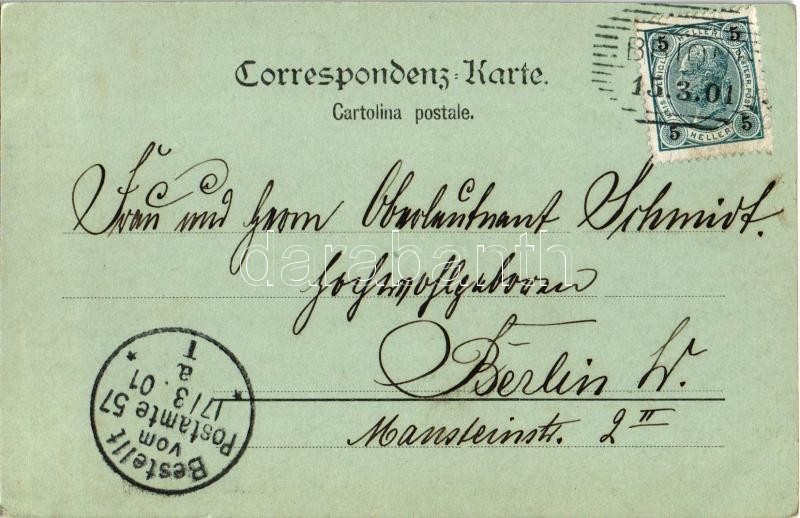 Correspondenz-Karte.
Cartolina postale.
5 HELLER 5
15.3.01
5 HELLER 5
Frau und Herrn Oberleutnant Schmidt.
Hochwohlgeboren
Berlin W.
Mansteinstr. 2 II
Bestellt
vom
Postamte 57
17/3.01
a
T
darabanth